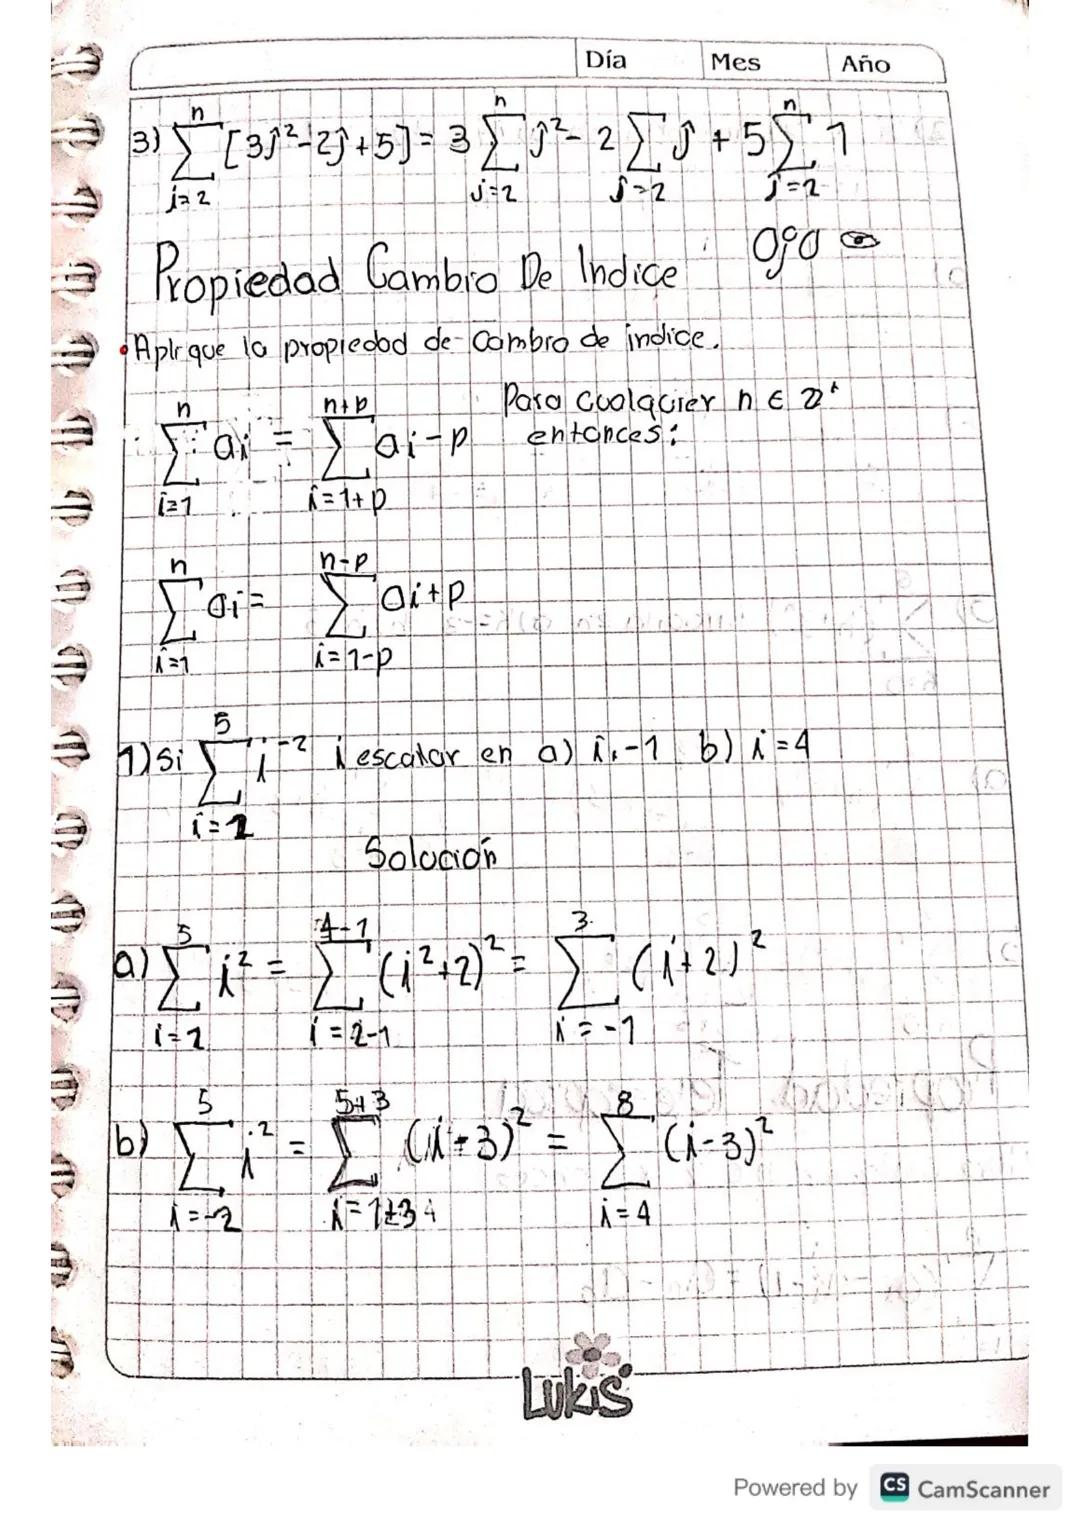 Día Mes Año
3) n∑j=2 [3j²-2j+5] = 3 n∑j=2 j² - 2 ∑j=2 j + 5 n∑j=2 1
Propiedad Cambio De Indice Ojo
•Aplique la propiedad de Cambio de indice.
n∑i=1 ai = n+p∑i=1+p ai-p Para cualquier n ∈ Z⁺
entonces:
n∑i=1 ai = n-p∑i=1-p ai+p
1) Si 5∑i=1 i⁻² i escalar en a) i=-1 b) i=4
Solución
a) 5∑i=2 i² = 4-1∑i=2-1 (i²+2)² = 3∑i=-1 (i+2)²
b) 5∑i=-2 i² = 5+3∑i=1+3 4 (i-3)² = 8∑i=4 (i-3)²
Lukis
Powered by CS CamScanner